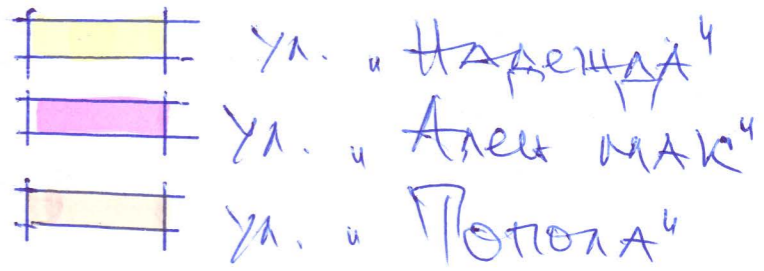 ул. „Надежда“
ул. „Ален мак“
ул. „Топола“